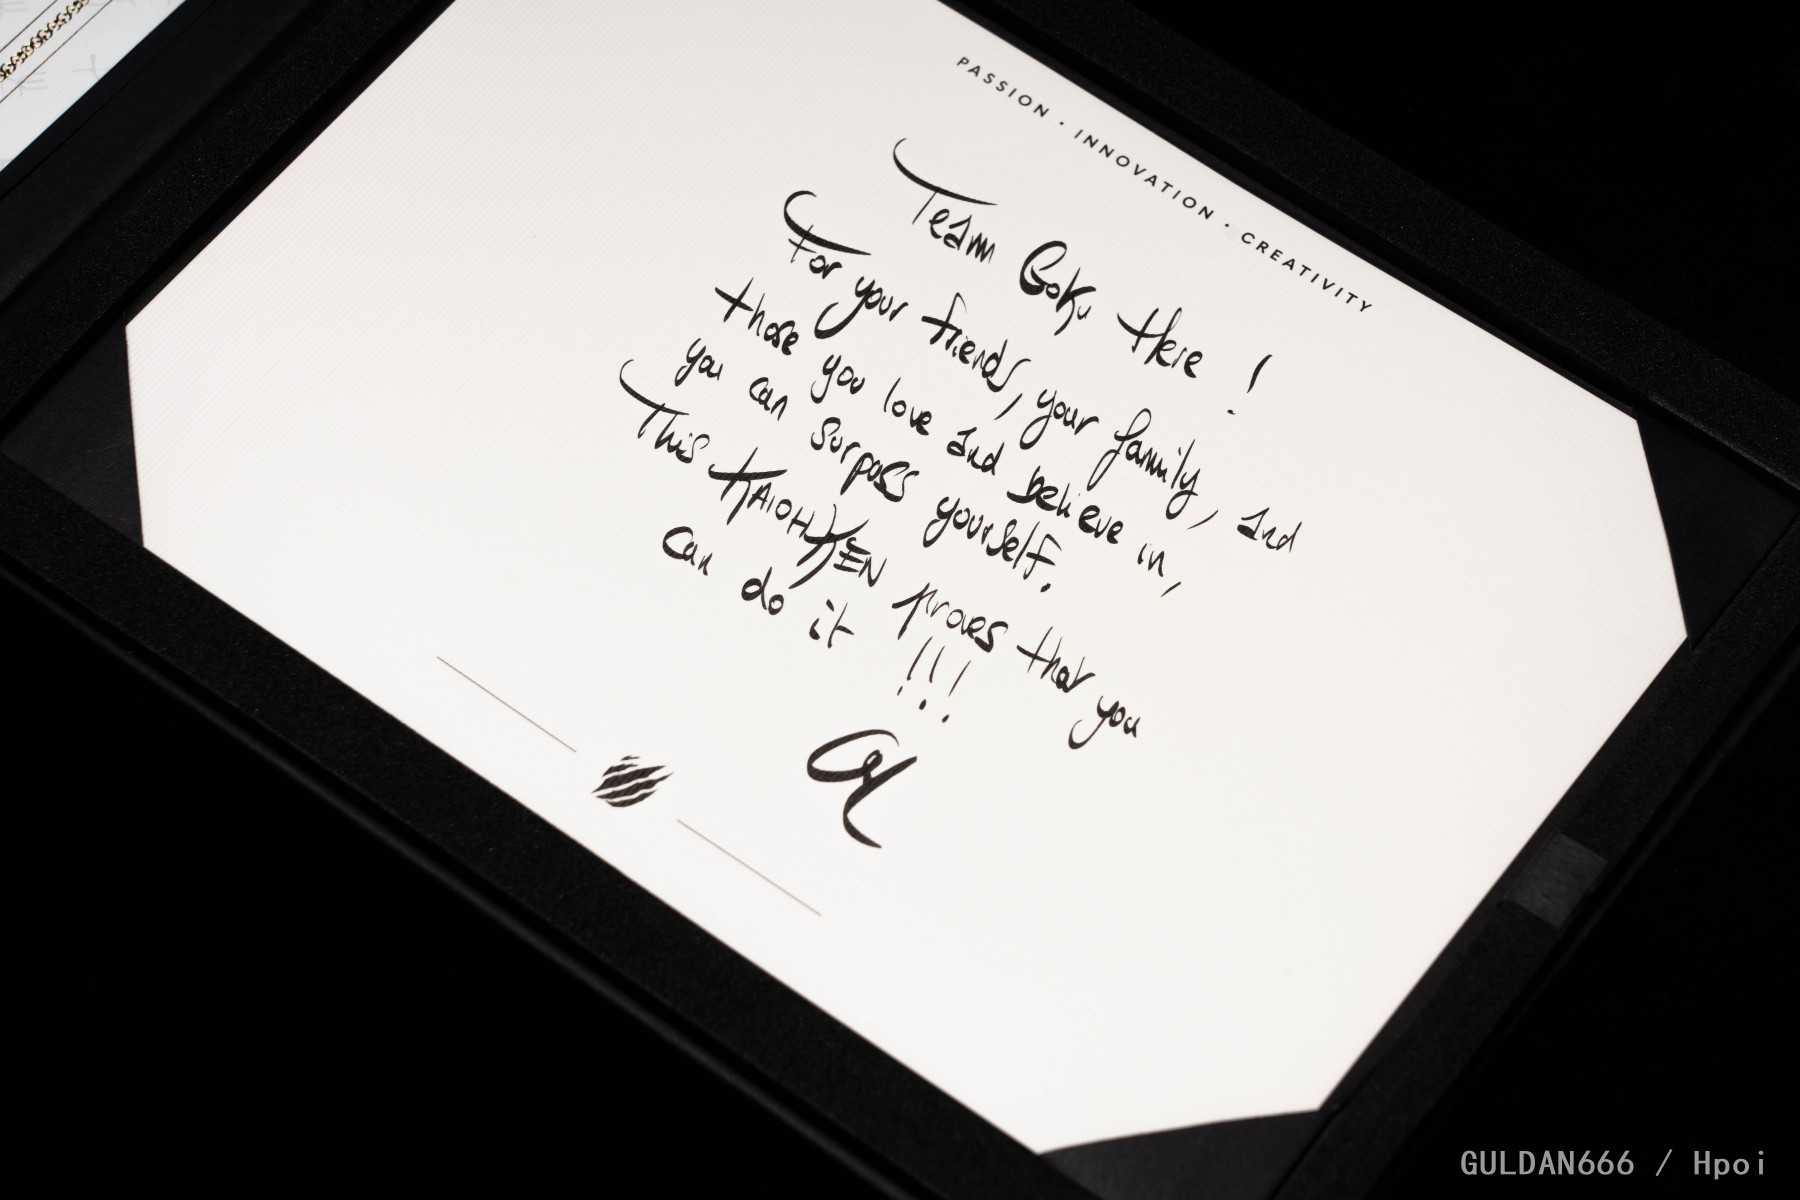 PASSION · INNOVATION · CREATIVITY
Team Goku Here !
For your friends, your family, and
those you love and believe in,
you can surpass yourself.
This KAIOH KEN proves that you
can do it !!!
GULDAN666 / Hpoi